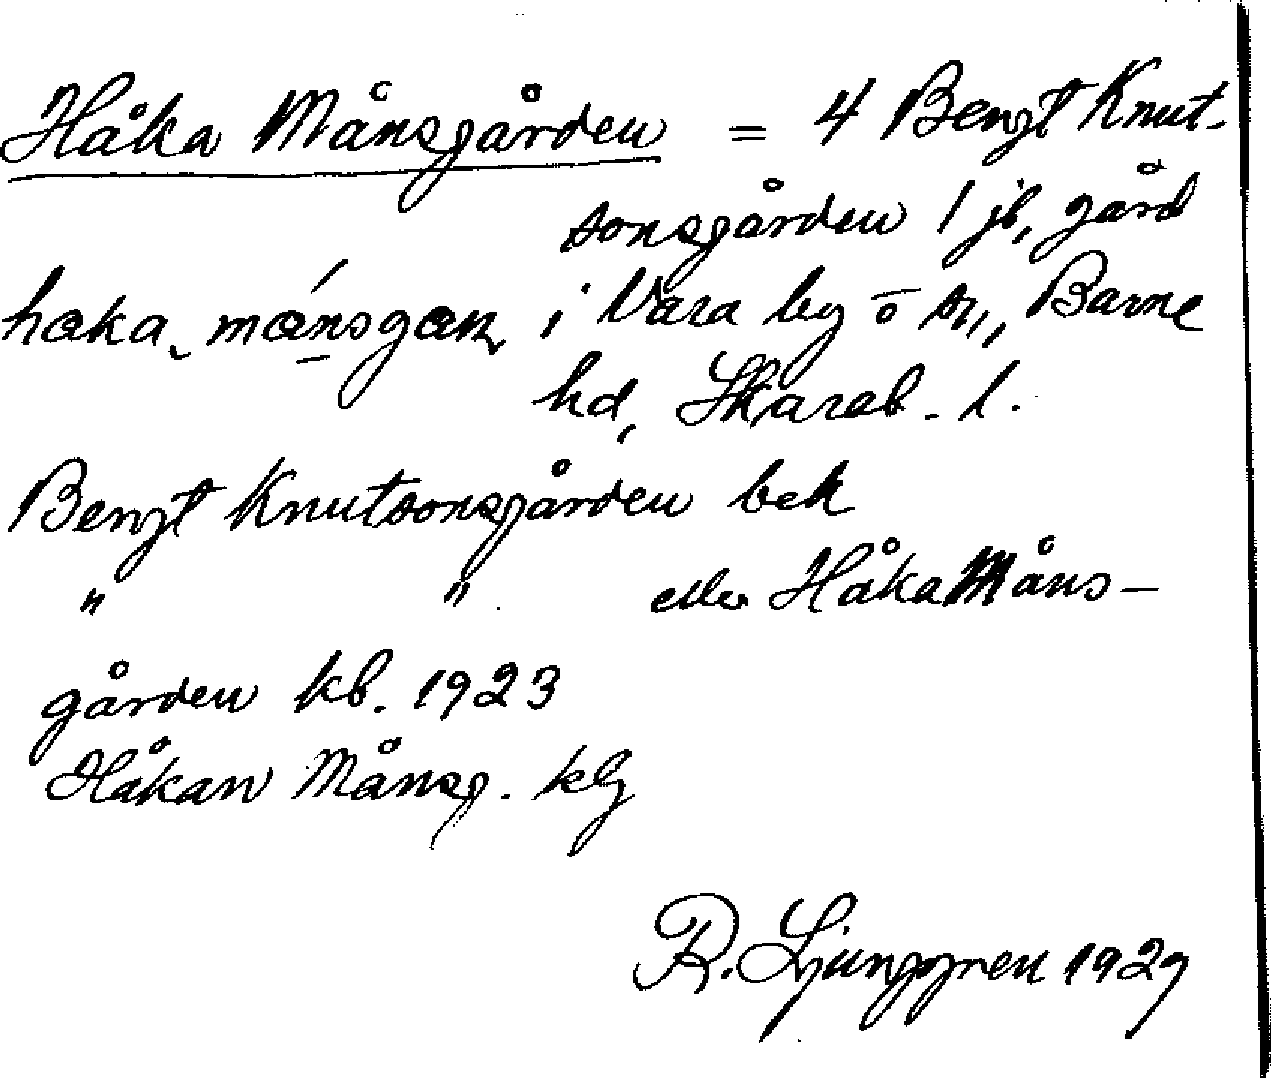 Håka Månsgården = 4 Bengt Knut-
sonsgården 1 jb, gård
haka månsgan i Vara by o sn, Barne
hd, Skarab. l.
Bengt Knutsonsgården bek
" " eller Håka Måns-
gården kb. 1923
Håkan Månsg. klg
R. Ljunggren 1929